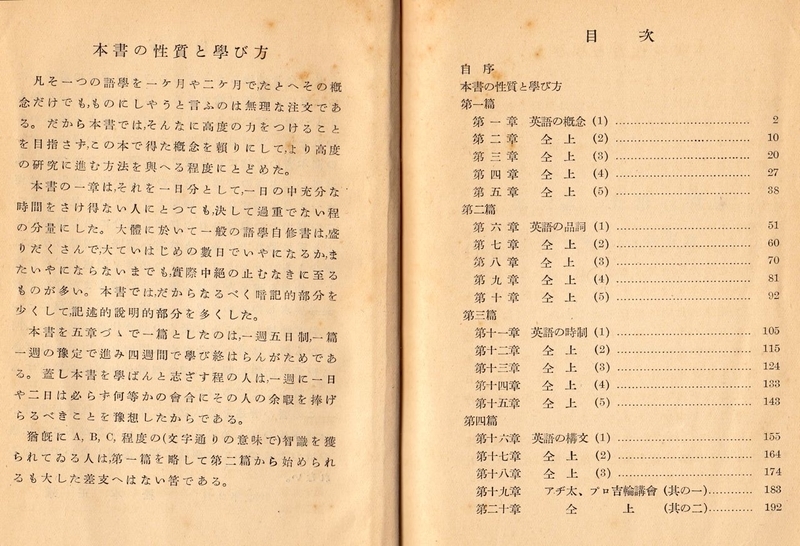 本書の性質と學び方
凡そ一つの語學を一ケ月や二ケ月で,たとへその概
念だけでも,ものにしやうと言ふのは無理な注文であ
る。だから本書では,そんなに高度の力をつけること
を目指さす,この本で得た概念を頼りにして,より高度
の研究に進む方法を與へる程度にとどめた。
本書の一章は,それを一日分として,一日の中充分な
時間をさけ得ない人にとつても,決して過重でない程
の分量にした。大體に於いて一般の語學自修書は,盛
りだくさんで,大ていはじめの數日でいやになるか,ま
たいやにならないまでも,實際中絶の止むなきに至る
ものが多い。本書では,だからなるべく暗記的部分を
少くして,記述的說明的部分を多くした。
本書を五章づゝで一篇としたのは,一週五日制,一篇
一週の豫定で進み四週間で學び終はらんがためであ
る。蓋し本書を學ばんと志ざす程の人は,一週に一日
や二日は必らず何等かの會合にその人の余暇を捧げ
らるべきことを豫想したからである。
猶旣に A, B, C, 程度の(文字通りの意味で)智識を獲
られてゐる人は,第一篇を略して第二篇から始められ
るも大した差支へはない筈である。
目次
自序
本書の性質と學び方
第一篇
第一章 英語の概念 (1) ……… 2
第二章 仝上 (2) ……… 10
第三章 仝上 (3) ……… 20
第四章 仝上 (4) ……… 27
第五章 仝上 (5) ……… 38
第二篇
第六章 英語の品詞 (1) ……… 51
第七章 仝上 (2) ……… 60
第八章 仝上 (3) ……… 70
第九章 仝上 (4) ……… 81
第十章 仝上 (5) ……… 92
第三篇
第十一章 英語の時制 (1) ……… 105
第十二章 仝上 (2) ……… 115
第十三章 仝上 (3) ……… 124
第十四章 仝上 (4) ……… 133
第十五章 仝上 (5) ……… 143
第四篇
第十六章 英語の構文 (1) ……… 155
第十七章 仝上 (2) ……… 164
第十八章 仝上 (3) ……… 174
第十九章 アヂ太、プロ吉輪講會 (其の一) ……… 183
第二十章 仝上 (其の二) ……… 192